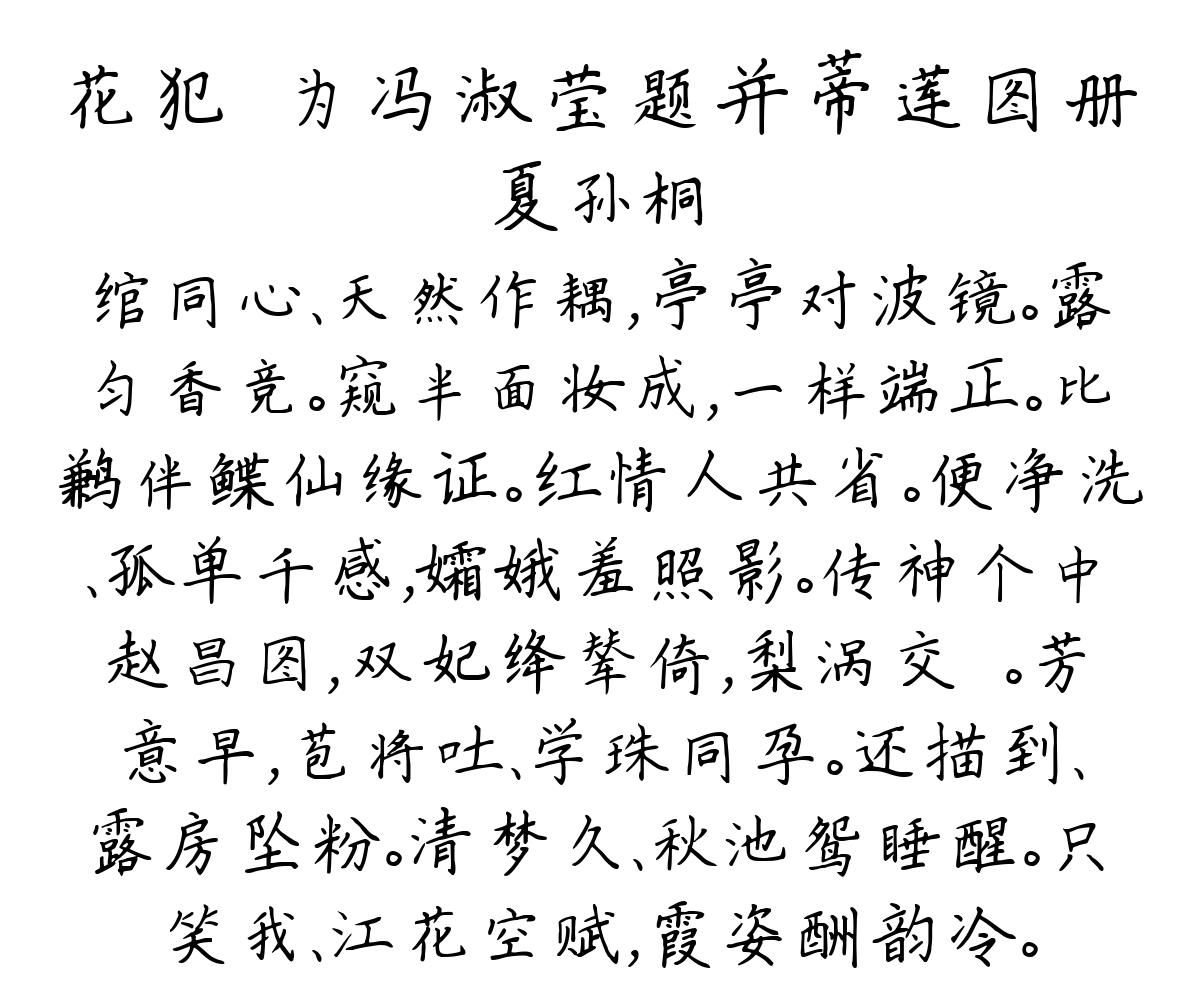 花犯 为冯淑莹题并蒂莲图册
夏孙桐
绾同心、天然作耦,亭亭对波镜。露
匀香竞。窥半面妆成,一样端正。比
鹣伴鲽仙缘证。红情人共省。便净洗
、孤单千感,孀娥羞照影。传神个中
赵昌图,双妃绛辇倚,梨涡交 。芳
意早,苞将吐、学珠同孕。还描到、
露房坠粉。清梦久、秋池鸳睡醒。只
笑我、江花空赋,霞姿酬韵冷。